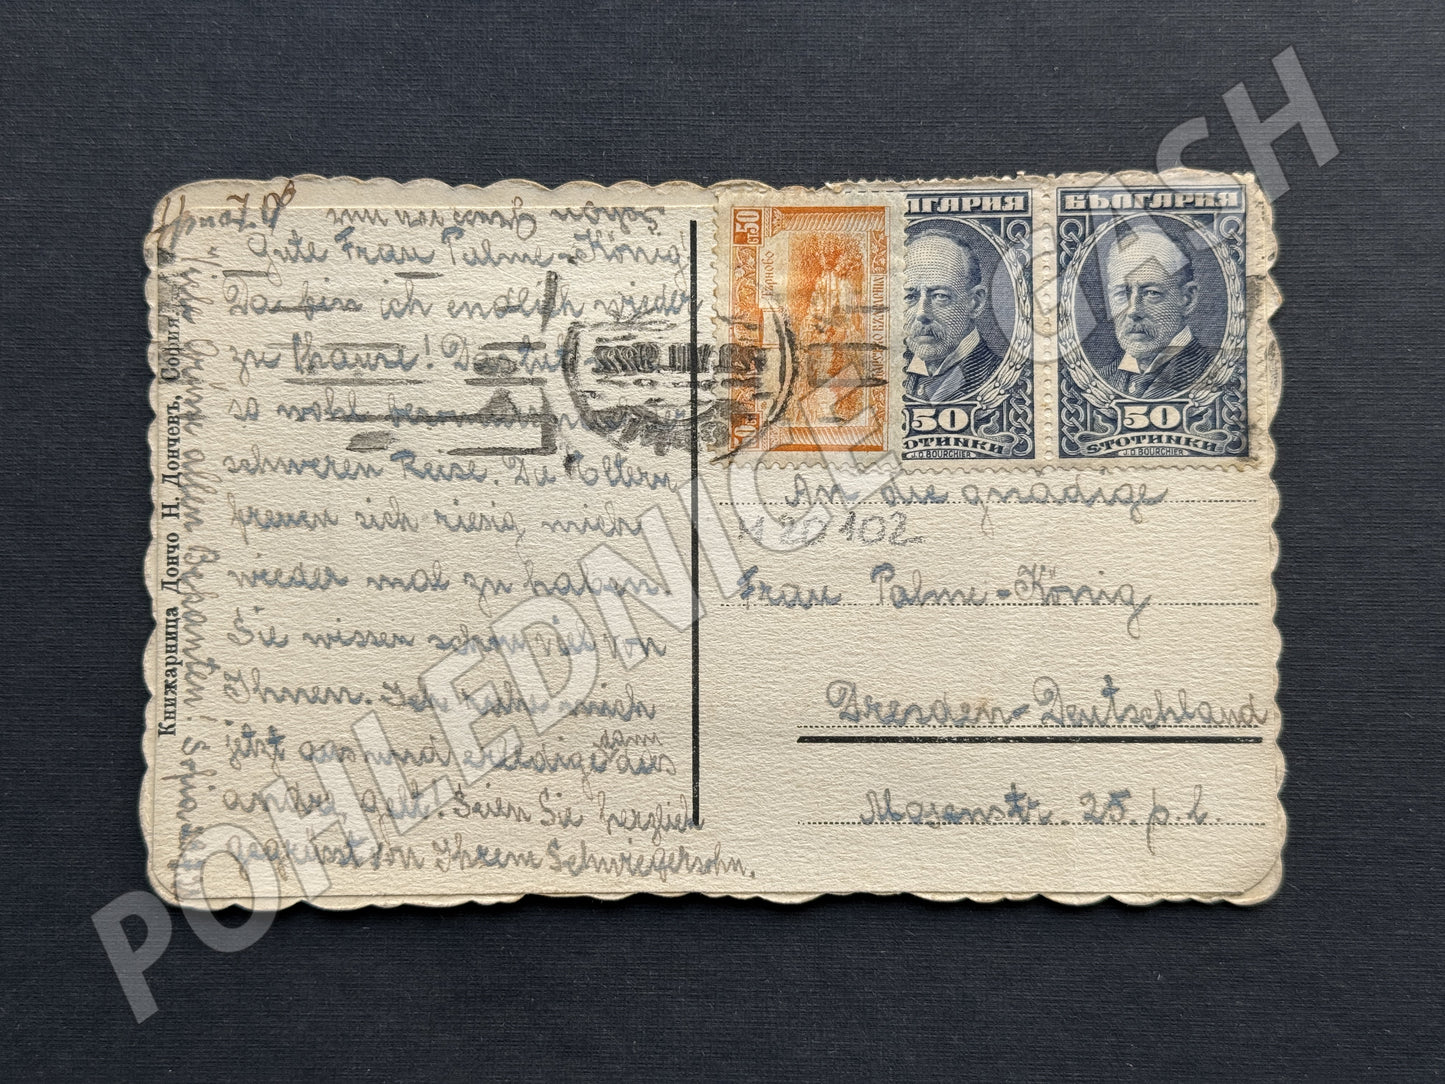 Gute Frau Palme-König!
Da bin ich endlich wieder
zu Hause! Das tut
so wohl besonders nach der
schweren Reise. Die Eltern
freuen sich riesig mich
wieder mal zu haben.
Sie wissen schon viel von
Ihnen. Ich ruhe mich
jetzt aus und erledige
das
andre, gelt. Seien Sie herzlich
gegrüsst von Ihrem Schwiegersohn.
Viele Grüße allen Bekannten! Sofia
Книжарница Дончо Н. Дончевъ, София.
50
СТ
Търново
50
БЪЛГАРИЯ
50
СТОТИНКИ
J.D BOURCHIER
БЪЛГАРИЯ
50
СТОТИНКИ
J.D BOURCHIER
An die gnädige
M20102
Frau Palme-König
Dresden-Deutschland
Mosenstr. 25. p. l.
POHLEDNICE CASH